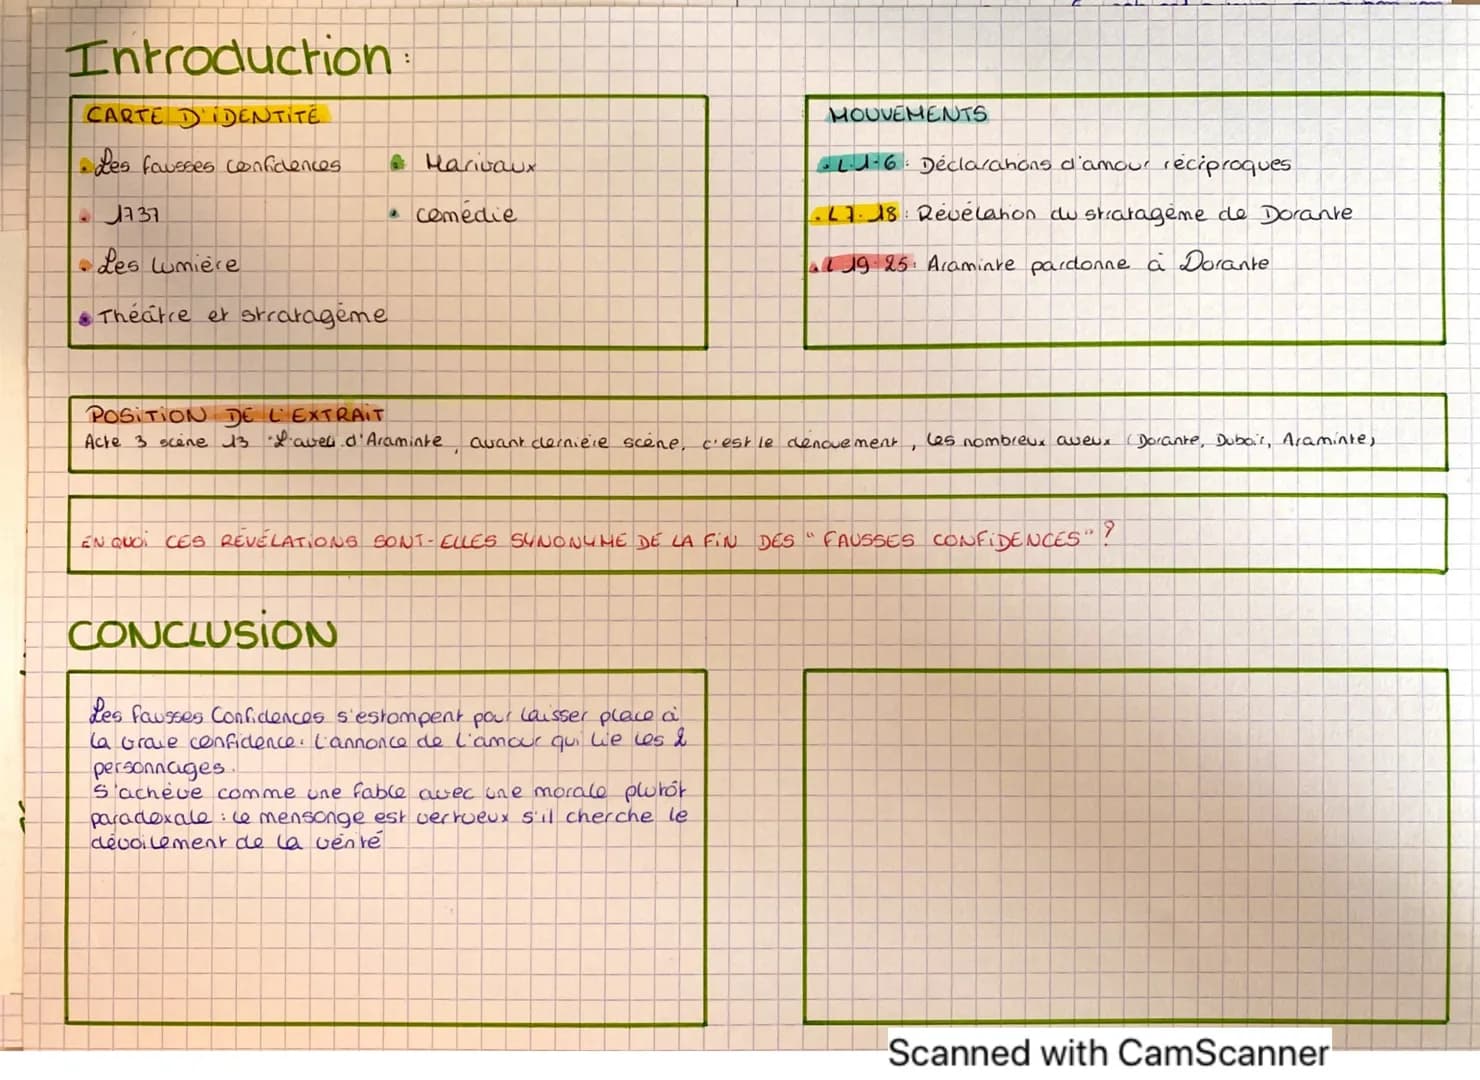 Introduction :
CARTE D'IDENTITÉ
• Les fausses confidences
• Marivaux
• 1737
• comédie
• Les lumière
• Théâtre et stratagème
MOUVEMENTS
• L.1-6 : Déclarations d'amour réciproques
• L7-18 : Révélation du stratagème de Dorante
• L 19-25: Araminte pardonne à Dorante
POSITION DE L'EXTRAIT
Acte 3 scène 13 "L'aveu d'Araminte, avant dernière scène, c'est le dénouement, les nombreux aveux (Dorante, Dubois, Araminte)
EN QUOI CES RÉVÉLATIONS SONT-ELLES SYNONYME DE LA FIN DES "FAUSSES CONFIDENCES" ?
CONCLUSION
Les fausses Confidences s'estompent pour laisser place à
la vraie confidence: l'annonce de l'amour qui lie les 2
personnages.
S'achève comme une fable avec une morale plutôt
paradoxale : le mensonge est vertueux s'il cherche le
dévoilement de la vérité
Scanned with CamScanner